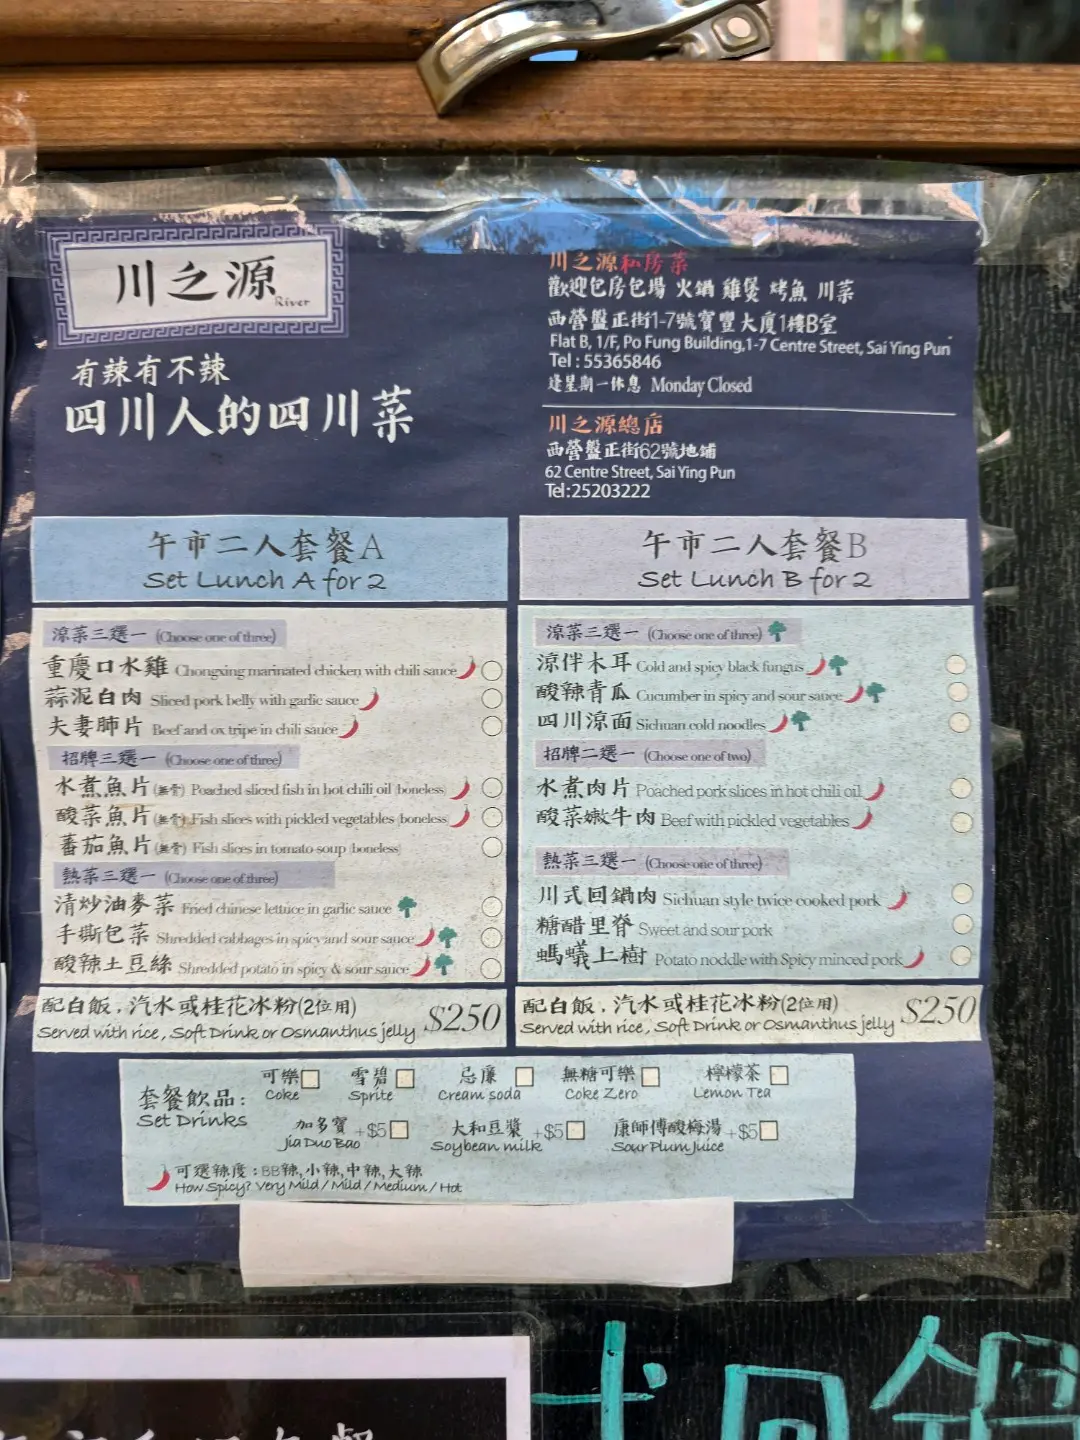 川之源
River
有辣有不辣
四川人的四川菜
川之源私房菜
歡迎包房包場 火鍋 雞煲 烤魚 川菜
西營盤正街1-7號寶豐大廈1樓B室
Flat B, 1/F, Po Fung Building,1-7 Centre Street, Sai Ying Pun
Tel : 55365846
逢星期一休息 Monday Closed
川之源總店
西營盤正街62號地鋪
62 Centre Street, Sai Ying Pun
Tel:25203222
午市二人套餐A
Set Lunch A for 2
涼菜三選一 (Choose one of three)
重慶口水雞 Chongxing marinated chicken with chili sauce
蒜泥白肉 Sliced pork belly with garlic sauce
夫妻肺片 Beef and ox tripe in chili sauce
招牌三選一 (Choose one of three)
水煮魚片(無骨) Poached sliced fish in hot chili oil (boneless)
酸菜魚片(無骨) Fish slices with pickled vegetables (boneless)
蕃茄魚片(無骨) Fish slices in tomato soup (boneless)
熱菜三選一 (Choose one of three)
清炒油麥菜 Fried chinese lettuce in garlic sauce
手撕包菜 Shredded cabbages in spicy and sour sauce
酸辣土豆絲 Shredded potato in spicy & sour sauce
配白飯,汽水或桂花冰粉(2位用)
Served with rice, Soft Drink or Osmanthus jelly
$250
午市二人套餐B
Set Lunch B for 2
涼菜三選一 (Choose one of three)
涼伴木耳 Cold and spicy black fungus
酸辣青瓜 Cucumber in spicy and sour sauce
四川涼面 Sichuan cold noodles
招牌二選一 (Choose one of two)
水煮肉片 Poached pork slices in hot chili oil
酸菜嫩牛肉 Beef with pickled vegetables
熱菜三選一 (Choose one of three)
川式回鍋肉 Sichuan style twice cooked pork
糖醋里脊 Sweet and sour pork
螞蟻上樹 Potato noddle with Spicy minced pork
配白飯,汽水或桂花冰粉(2位用)
Served with rice, Soft Drink or Osmanthus jelly
$250
套餐飲品:
Set Drinks
可樂 雪碧 忌廉 無糖可樂 檸檬茶
Coke Sprite Cream soda Coke Zero Lemon Tea
加多寶 +$5 大和豆漿 +$5 康師傅酸梅湯 +$5
Jia Duo Bao Soybean milk Sour Plum Juice
可選辣度:BB辣,小辣,中辣,大辣
How Spicy? Very Mild / Mild / Medium / Hot
回鍋